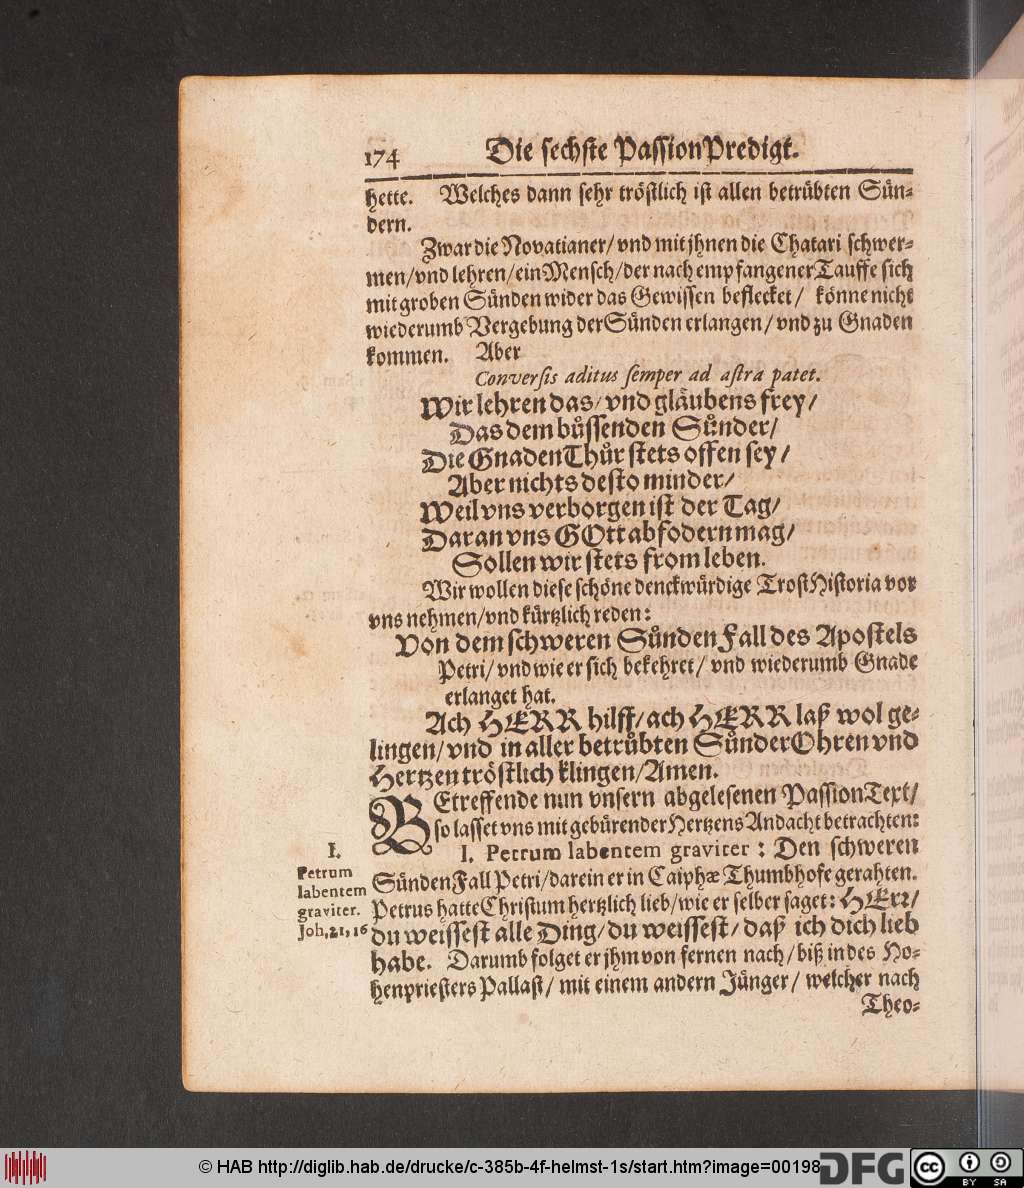 174 Die sechste PassionPredigt.
hette. Welches dann sehr tröstlich ist allen betrübten Sün-
dern.
Zwar die Novatianer/ vnd mit jhnen die Chatari schwer-
men/ vnd lehren/ ein Mensch/ der nach empfangener Tauffe sich
mit groben Sünden wider das Gewissen beflecket/ könne nicht
wiederumb Vergebung der Sünden erlangen/ vnd zu Gnaden
kommen. Aber
Conversis aditus semper ad astra patet.
Wir lehren das/ vnd gläubens frey/
Das dem büssenden Sünder/
Die GnadenThür stets offen sey/
Aber nichts desto minder/
Weil vns verborgen ist der Tag/
Daran vns GOtt abfodern mag/
Sollen wir stets from leben.
Wir wollen diese schöne denckwürdige TrostHistoria vor
vns nehmen/ vnd kürtzlich reden:
Von dem schweren SündenFall des Apostels
Petri/ vnd wie er sich bekehret/ vnd wiederumb Gnade
erlanget hat.
Ach HERR hilff/ ach HERR laß wol ge-
lingen/ vnd in aller betrübten Sünder Ohren vnd
Hertzen tröstlich klingen/ Amen.
BEtreffende nun vnsern abgelesenen PassionText/
so lasset vns mit gebürender Hertzens Andacht betrachten:
I. Petrum labentem graviter: Den schweren
SündenFall Petri/ darein er in Caiphæ Thumbhofe gerahten.
Petrus hatte Christum hertzlich lieb/ wie er selber saget: HErr/
du weissest alle Ding/ du weissest/ daß ich dich lieb
habe. Darumb folget er jhm von fernen nach/ biß in des Ho-
henpriesters Pallast/ mit einem andern Jünger/ welcher nach
Theo-
I.
Petrum
labentem
graviter.
Joh. 21, 16
© HAB http://diglib.hab.de/drucke/c-385b-4f-helmst-1s/start.htm?image=00198
DFG
cc BY SA